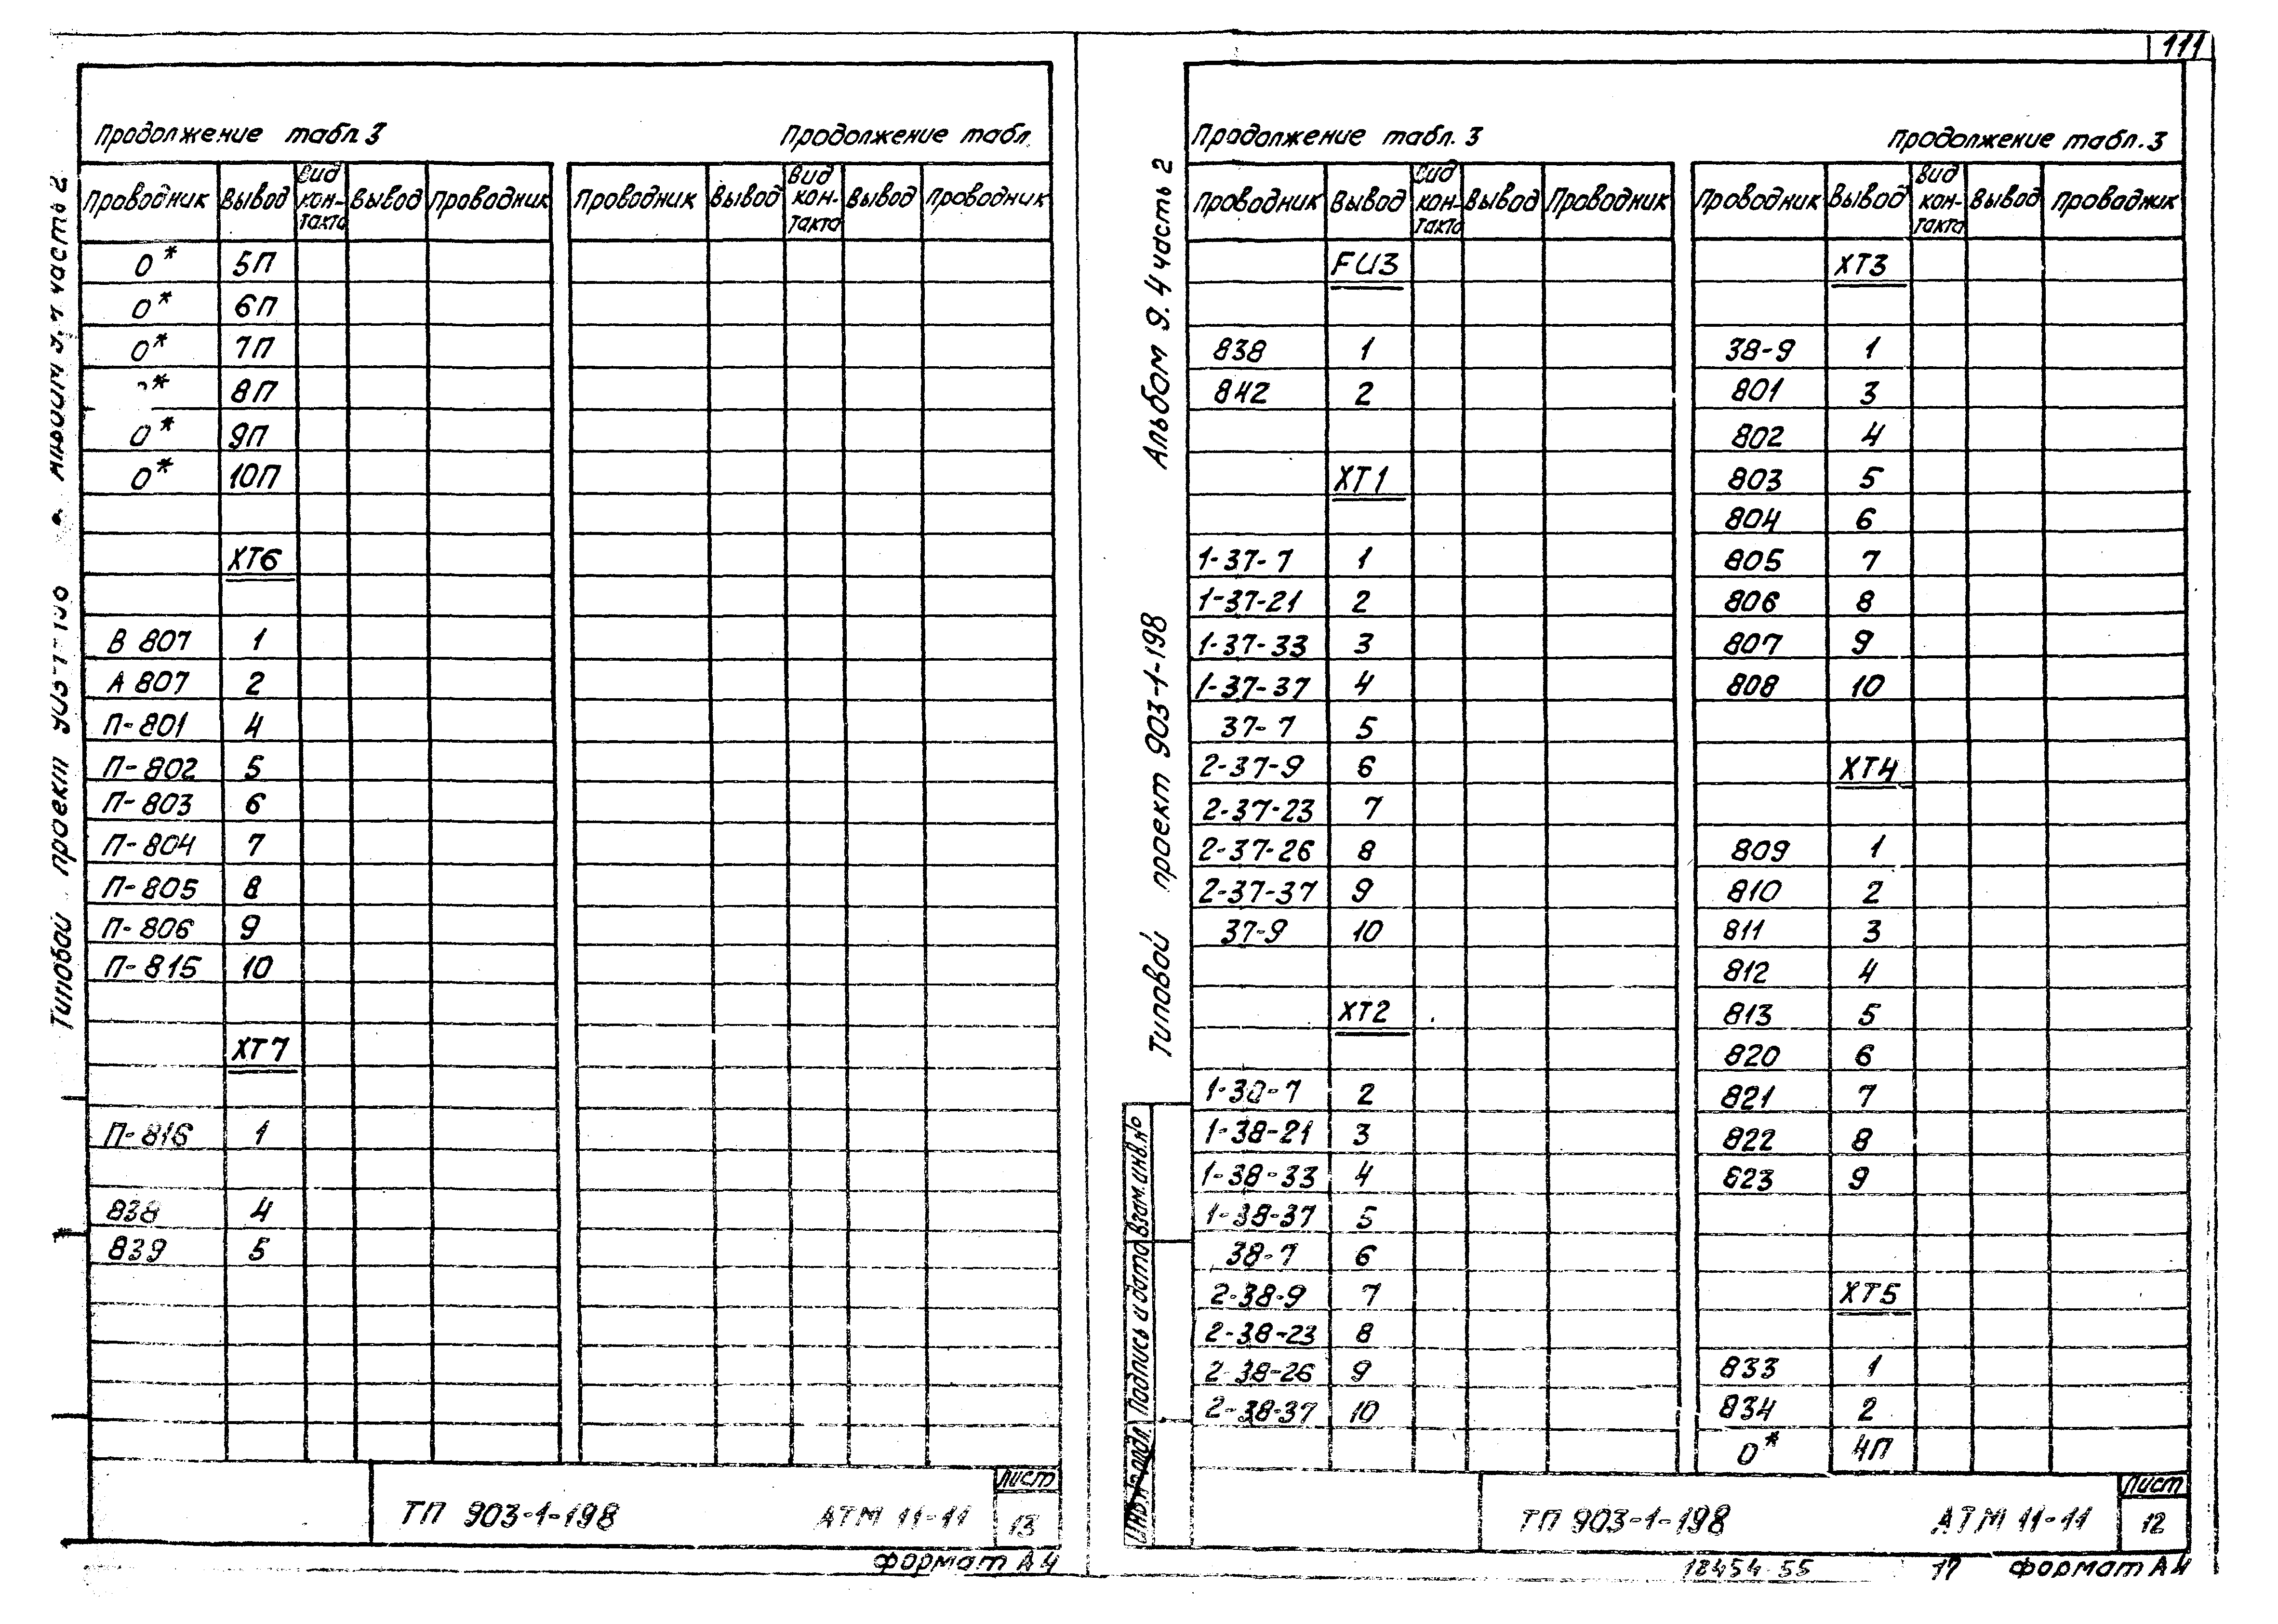 111
Продолжение табл 3
Продолжение табл.
Проводник Вывод Вид контакта Вывод Проводник Проводник Вывод Вид контакта Вывод Проводник
0* 5П
0* 6П
0* 7П
* 8П
0* 9П
0* 10П
ХТ6
В 807 1
А 807 2
П-801 4
П-802 5
П-803 6
П-804 7
П-805 8
П-806 9
П-815 10
ХТ7
П-816 1
838 4
839 5
часть 2
Типовой проект
ТП 903-1-198 АТМ 11-11
Лист
13
Формат А4
Продолжение табл. 3
Продолжение табл. 3
Проводник Вывод Вид контакта Вывод Проводник Проводник Вывод Вид контакта Вывод Проводник
FU3
838 1
842 2
ХТ1
1-37-7 1
1-37-21 2
1-37-33 3
1-37-37 4
37-7 5
2-37-9 6
2-37-23 7
2-37-26 8
2-37-37 9
37-9 10
ХТ2
1-38-7 2
1-38-21 3
1-38-33 4
1-38-37 5
38-7 6
2-38-9 7
2-38-23 8
2-38-26 9
2-38-37 10
ХТ3
38-9 1
801 3
802 4
803 5
804 6
805 7
806 8
807 9
808 10
ХТ4
809 1
810 2
811 3
812 4
813 5
820 6
821 7
822 8
823 9
ХТ5
833 1
834 2
0* 4П
Альбом 9.4 часть 2
Типовой проект 903-1-198
Взам.инв.№
Подпись и дата
Инв.№ подл.
ТП 903-1-198 АТМ 11-11
Лист
12
18454-55 17 Формат А4